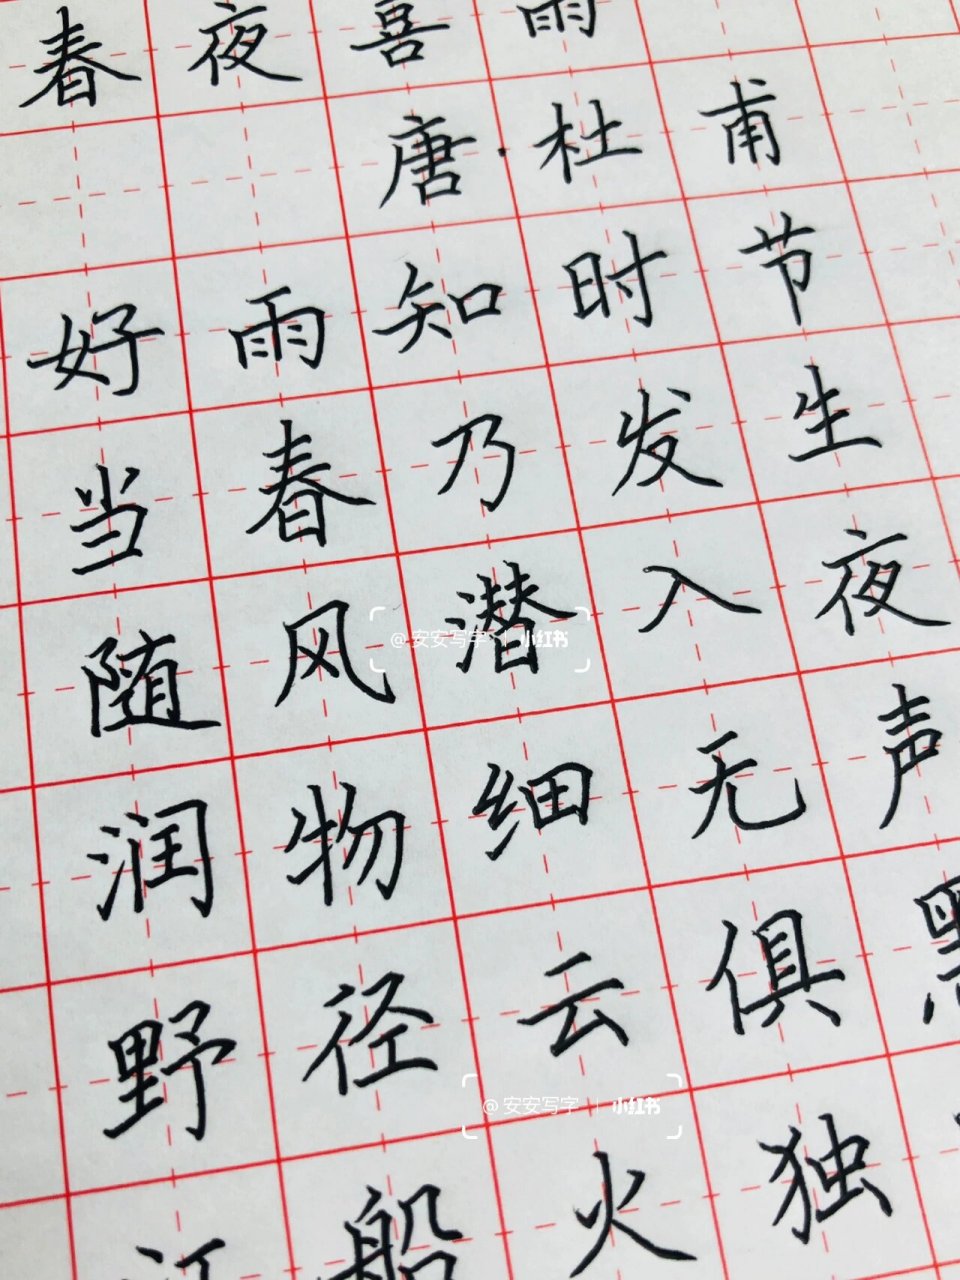 春夜喜雨
唐·杜甫
好雨知时节
当春乃发生
随风潜入夜
@安安写字 | 小红书
润物细无声
野径云俱黑
@安安写字 | 小红书
江船火独